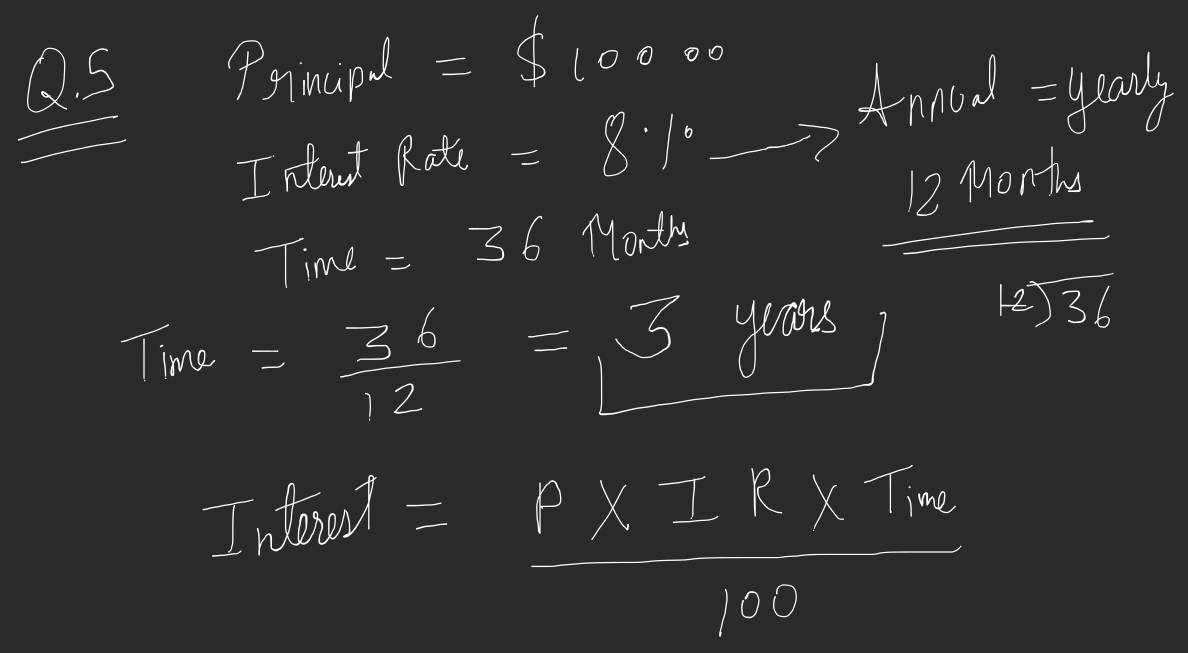 Q.5
Principal = $ 100 00
Interest Rate = 8 %
→ Annual = yearly
12 Months
Time = 36 Months
12)36
Time = 36/12 = 3 years
Interest = P X I R X Time
100